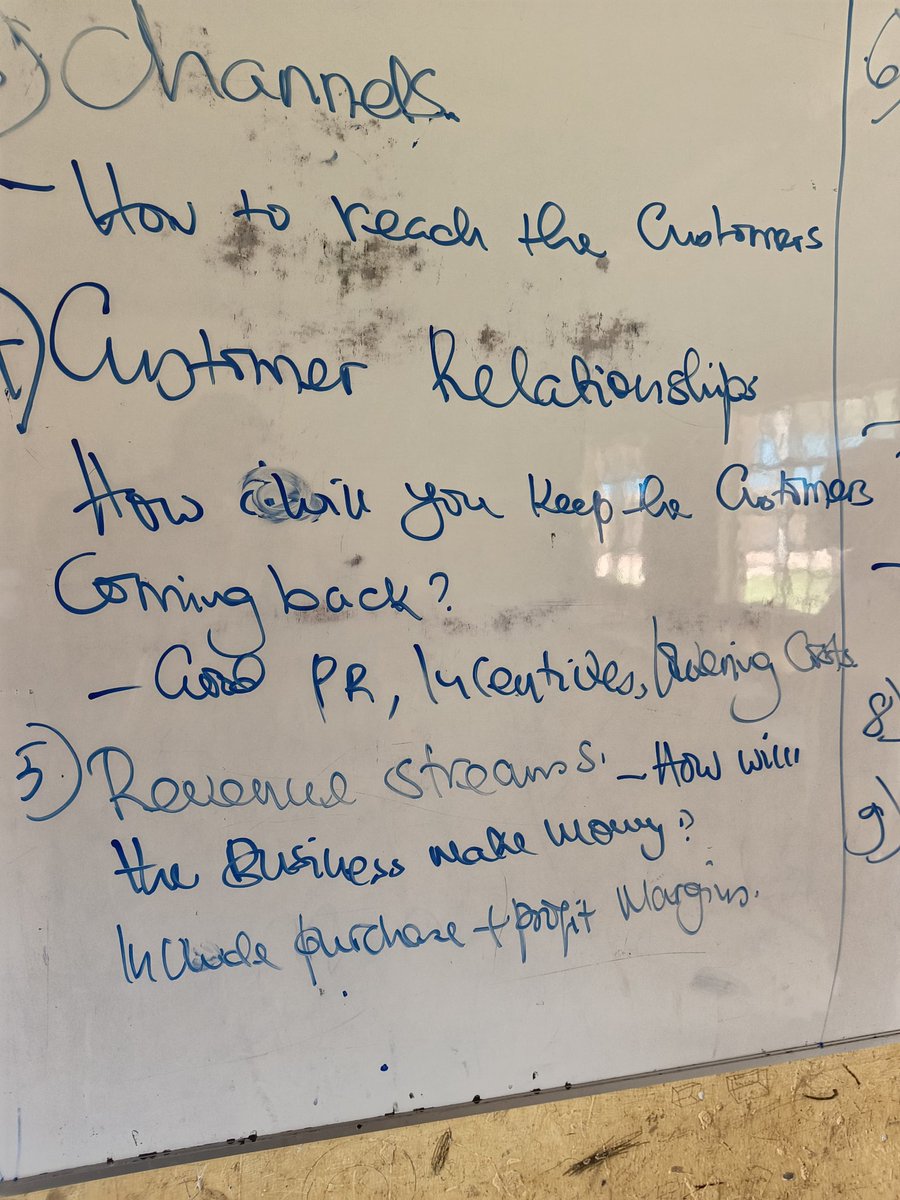 ) Channels
- How to reach the Customers
) Customer Relationships
How will you keep the Customers
Coming back?
- Good PR, Incentives, Lowering Costs
5) Revenue streams. - How will
the Business make money?
Include purchase + profit Margins.
6)
8)
9)